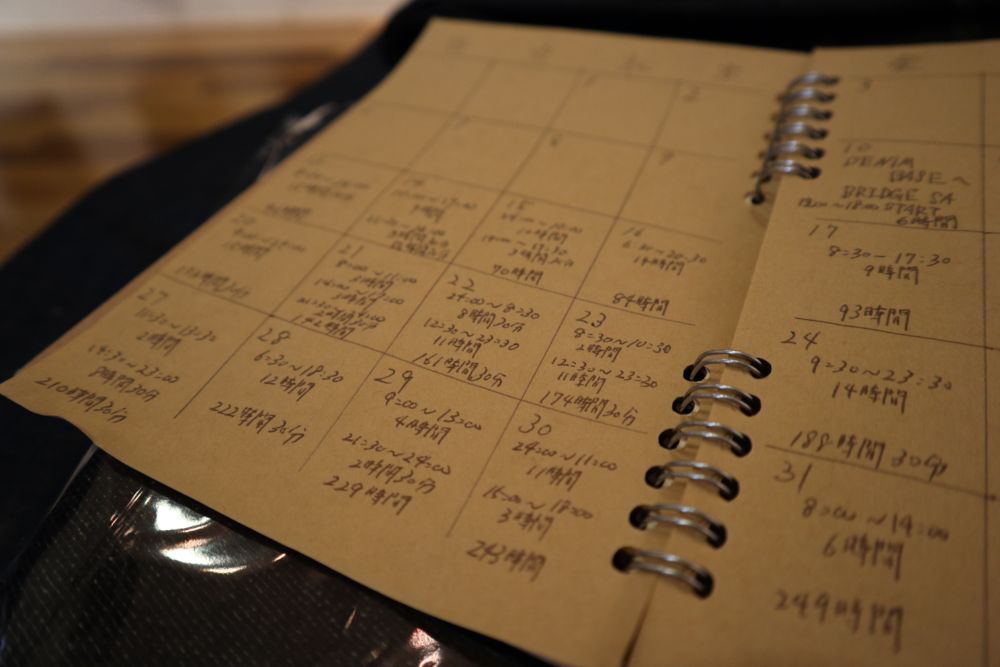 2
3
8
9
10
DENIM
BASEへ
BRIDGE SA
START
6時間
14
15
10時間
3時間30分
70時間
16
6:30~20:30
14時間
84時間
17
8:30-17:30
9時間
93時間
20
21
8:00~11:00
3時間
3時間
22
24:00~8:30
8時間30分
12:30~23:30
11時間
161時間30分
23
8:30~10:30
2時間
12:30~23:30
11時間
174時間30分
24
9:30~23:30
14時間
188時間30分
27
11:30~13:30
2時間
14:30~23:00
8時間30分
210時間30分
28
6:30~18:30
12時間
222時間30分
29
9:00~13:00
4時間
21:30~24:00
2時間30分
229時間
30
24:00~11:00
11時間
15:00~18:00
3時間
243時間
31
8:00~14:00
6時間
249時間